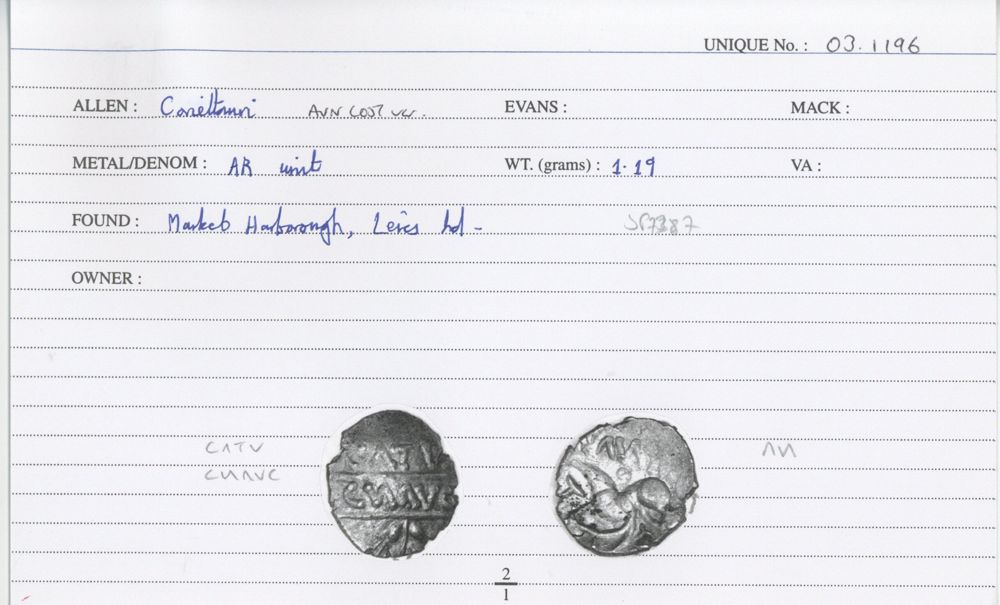 UNIQUE No. : 03.1196
ALLEN : Corieltauvi AVN COST EVANS : MACK :
METAL/DENOM : AR unit WT. (grams) : 1.19 VA :
FOUND : Market Harborough, Leics hd -
OWNER :
CATV
CNAVC
CATV
CNAVC
AN
AN
2
1